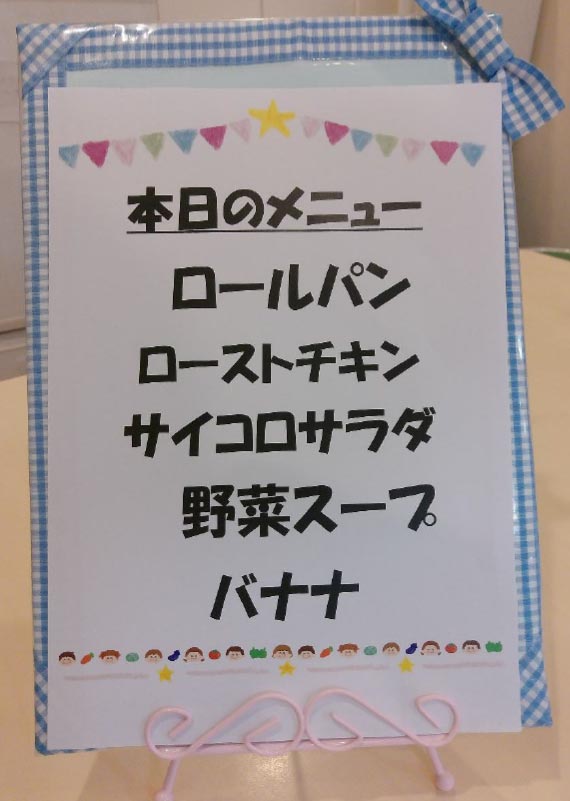 本日のメニュー
ロールパン
ローストチキン
サイコロサラダ
野菜スープ
バナナ